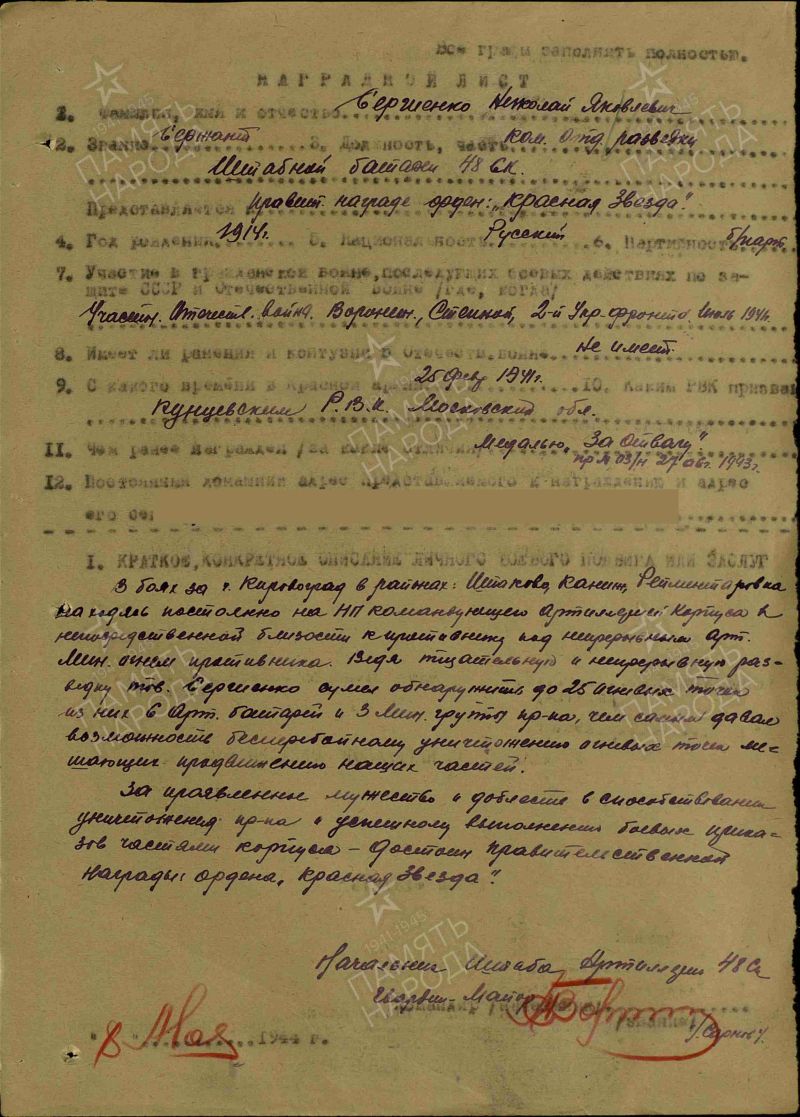 Все графы заполнять полностью.
НАГРАДНОЙ ЛИСТ
1. Фамилия, имя и отчество Сергиенко Николай Яковлевич
2. Звание Сержант 3. Должность, часть ком. отд. разведки
Штабной батареи 48 СК.
Представляется к правит. награде орден: „Красная Звезда"
4. Год рождения 1914г. 5. Национальность Русский 6. Партийность б/парт.
7. Участие в гражданской войне, последующих боевых действиях по за-
щите СССР и Отечественной войне /где, когда/
Участн. Отечеств. война. Воронеж., Степной, 2-й Укр. фронта, Июль 194
8. Имеет ли ранения и контузии в Отечеств. войне не имеет.
9. С какого времени в Красной армии 25 фев 1941г. 10. Каким РВК призван
Кунцевским Р.В.К. Московский обл.
11. Чем ранее награжден /за какие отличия Медалью „За Отвагу"
пр № 03/н 27 авг. 1943г.
12. Постоянный домашний адрес представляемого к награждению и адрес
его се
1. КРАТКОЕ, КОНКРЕТНОЕ ОПИСАНИЕ ЛИЧНОГО БОЕВОГО ПОДВИГА ИЛИ ЗАСЛУГ
В боях за г. Кировоград в районах: Каниж, Рейментаровка
находясь постоянно на НП командующего Артиллерией Корпуса в
непосредственной близости к противнику под непрерывным арт.
мин. огнем противника. Ведя тщательную и непрерывную раз-
ведку тов. Сергиенко сумел обнаружить до 25 огневых точек
из них 6 Арт. батарей и 3 Мин. группы пр-ка, чем самым давал
возможность бесперебойному уничтожению огневых точек ме-
шающих продвижению наших частей.
За проявленное мужество и доблести в способствовании
уничтожения пр-ка и успешному выполнению боевых прика-
зов частями корпуса – достоин правительственной
награды: ордена „Красная Звезда".
Начальник Штаба Артиллерии 48 Ск
Гвардии-Майор
8 Мая 1944 г.
ПАМЯТЬ НАРОДА
1941-1945